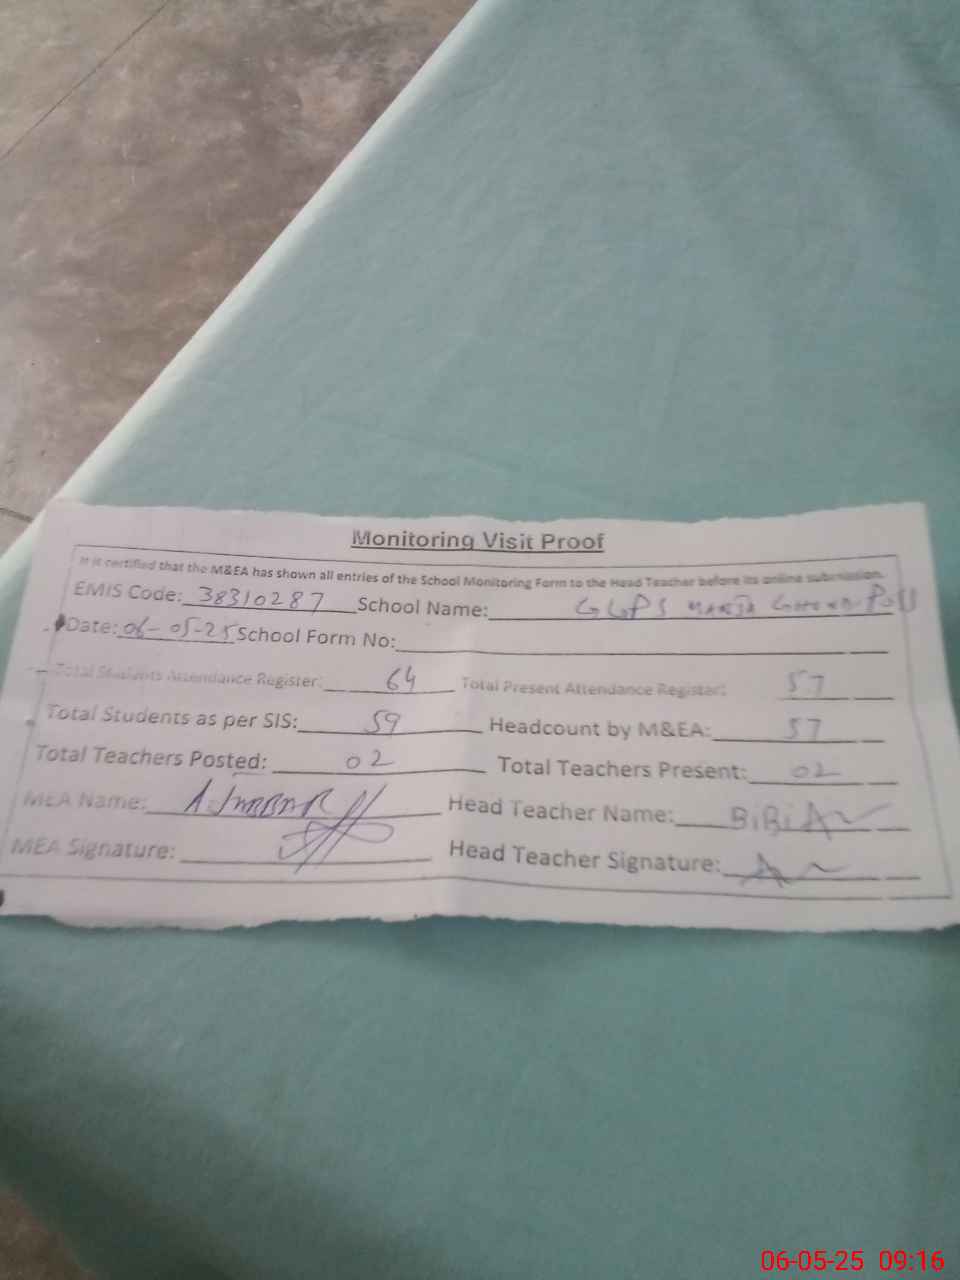 Monitoring Visit Proof
It is certified that the M&EA has shown all entries of the School Monitoring Form to the Head Teacher before its online submission.
EMIS Code: 38310287 School Name: GGPS
Date: 06-05-25 School Form No:
Total Students Attendance Register: 64 Total Present Attendance Register: 57
Total Students as per SIS: 59 Headcount by M&EA: 57
Total Teachers Posted: 02 Total Teachers Present: 02
MEA Name: Head Teacher Name: BiBi
MEA Signature: Head Teacher Signature:
06-05-25 09:16